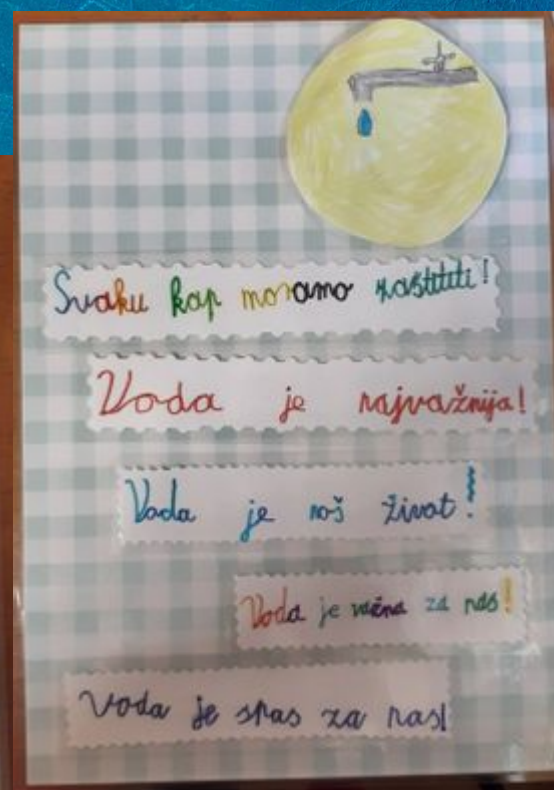 Svaku kap moramo zaštititi!
Voda je najvažnija!
Voda je naš život!
Voda je važna za nas!
Voda je spas za nas!